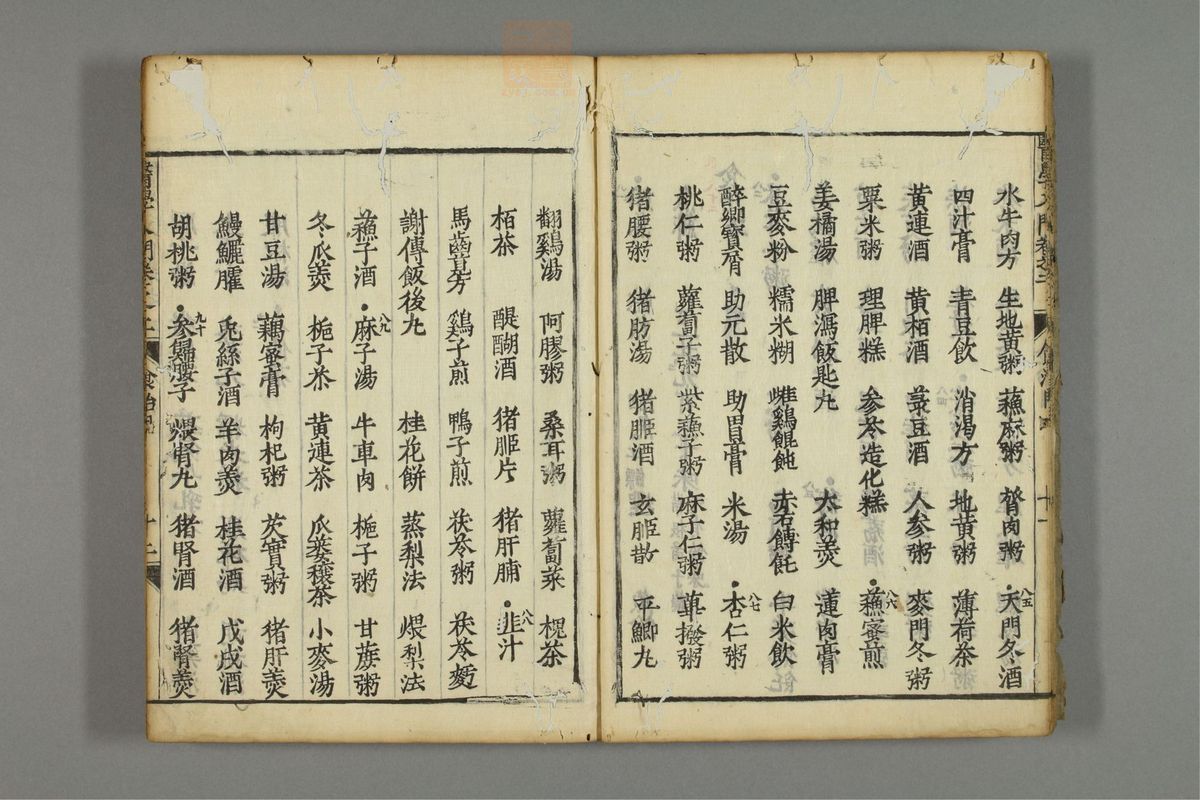 水牛肉方 生地黄粥 蘓麻粥 䐗肉粥 •天門冬酒 八五
四汁膏 青豆飲 消渴方 地黄粥 薄荷茶
黄連酒 黄栢酒 菉豆酒 人参粥 麥門冬粥
粟米粥 理脾糕 参苓造化糕 •蘓蜜煎 八六
姜橘湯 脾瀉飯匙丸 太和羮 蓮肉膏
豆麥粉 糯米糊 雌鷄餛飩 赤石餺飥 白米飲
醉鄉寳屑 助元散 助胃膏 米湯 •杏仁粥 八七
桃仁粥 蘿蔔子粥 紫蘓子粥 麻子仁粥 蓽撥粥
猪腰粥 猪肪湯 猪脏酒 玄脏散 平鯽丸
翻鷄湯 阿膠粥 桑耳粥 蘿蔔菜 槐茶
栢茶 醍醐酒 猪脏片 猪肝脯 •韭汁 八八
馬齒莧方 鷄子煎 鴨子煎 茯苓粥 茯苓麪
謝傅飯後丸 桂花餅 蒸梨法 煨梨法
蘓子酒 •麻子湯 八九 牛車肉 梔子粥 甘蔗粥
冬瓜羮 梔子茶 黄連茶 瓜蔞穰茶 小麥湯
甘豆湯 藕蜜膏 枸杞粥 芡實粥 猪肝羮
鰻鱺臛 兎絲子酒 羊肉羮 桂花酒 戊戌酒
胡桃粥 •参歸腰子 九十 煨腎丸 猪腎酒 猪腎羮